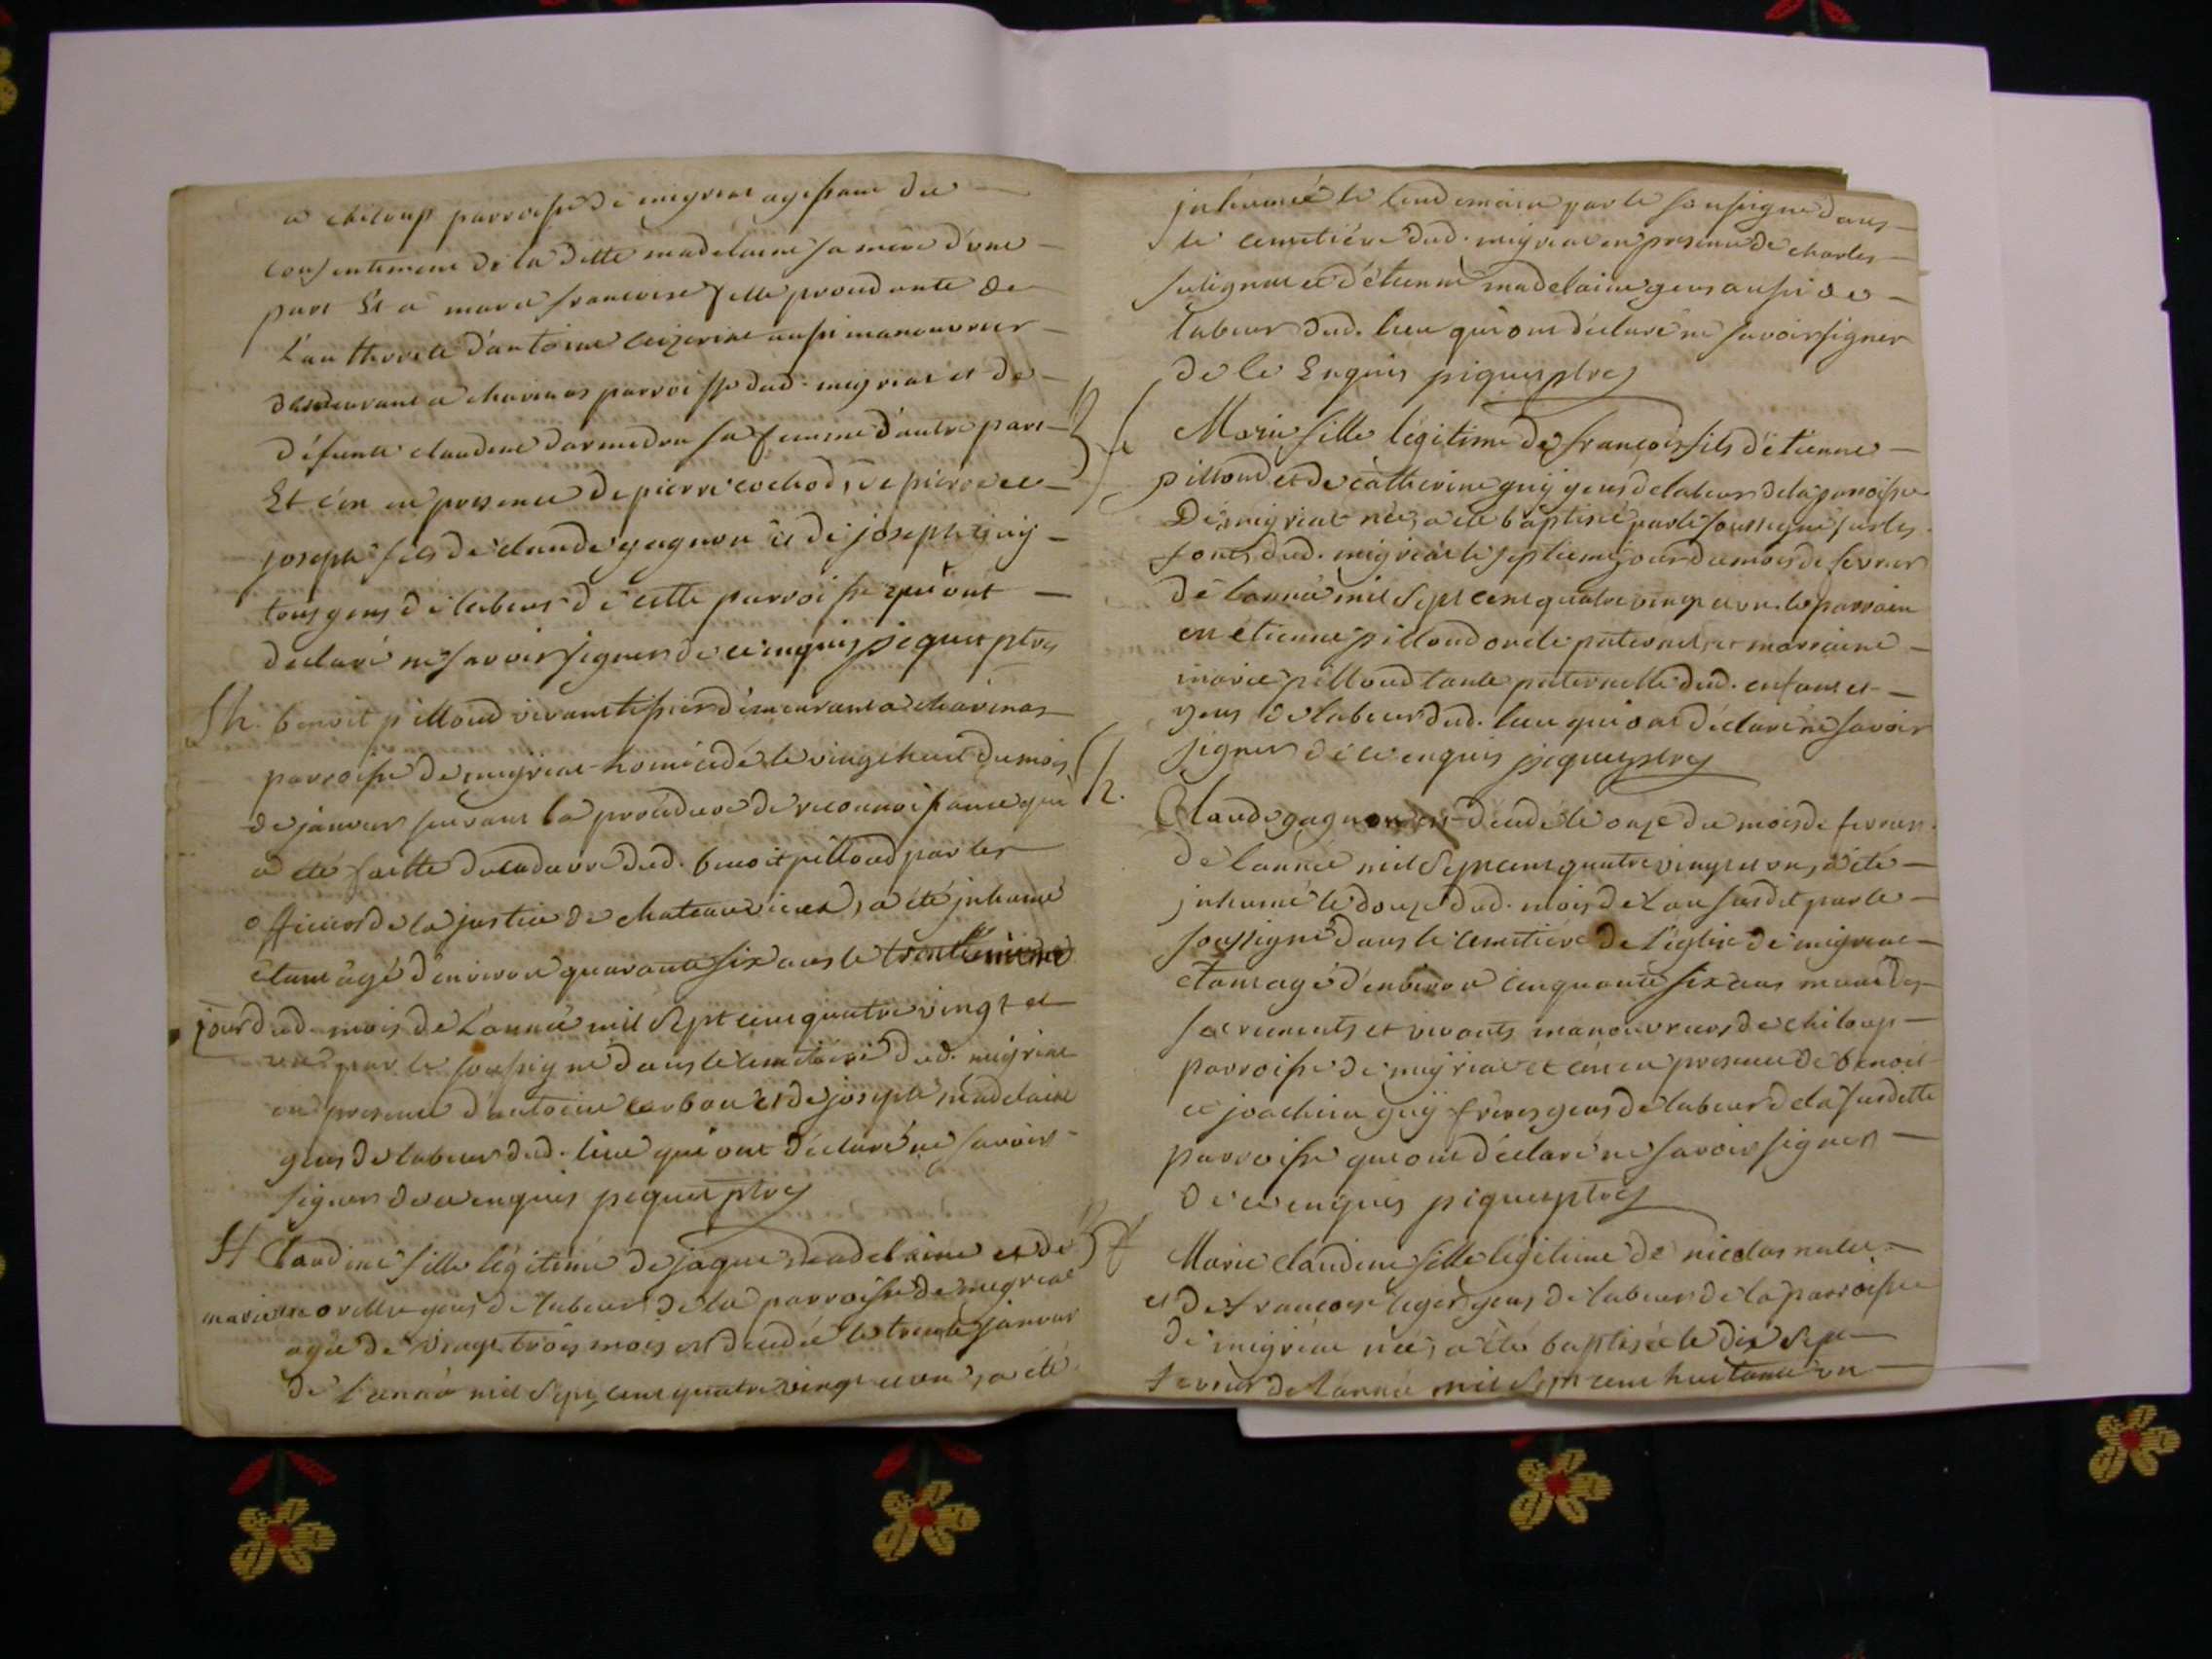 a chiloup parroisse de migriat agissant du
consentement de la ditte madelaine sa mere d'une
part Et a marie francoise fille procedante de
l'authorité d'antoine aussi manouvrier
demeurant a chavinas parroisse dud. migriat et de
défunte claudine sa femme d'autre part
Et c'en en presence de pierre cochod, de pierre et
joseph fils de claude gagnon et de joseph guy
tous gens de labeur de cette parroisse qui ont
declaré ne savoir signer de ce enquis piquet ptre
Sh. benoit pilloud vivant tissier demeurant a chavinas
parroisse de migriat homicidé le vingt huit du mois
de janvier suivant la procédure de reconnoissance qui
a été faitte du cadavre dud. benoit pilloud par les
officiers de la justice de chateauvieux, a été inhumé
étant âgé d'environ quarante six ans le trentieme
jour dud. mois de l'année mil sept cent quatre vingt et
un par le soussigné dans le cimetiére dud. migriat
en presence d'antoine carbon et de joseph madelaine
gens de labeur dud. lieu qui ont déclaré ne savoir
signer de ce enquis piquet ptre
Sf Claudine fille légitime de jaque madelaine et de
marie gens de labeur de la parroisse de migriat
agée de vingt trois mois est decedée le trente janvier
de l'année mil sept cent quatre vingt et un, a été
inhumée le lendemain par le soussigné dans
le cemetiére dud. migriat en presence de charles
et d'étienne madelaine gens aussi de
labeur dud. lieu qui ont déclaré ne savoir signer
de ce Enquis piquet ptre
f Marie fille légitime de françois fils d'étienne
pilloud et de catherine guÿ gens de labeur de la parroisse
De migriat née, a été baptisée par le soussigné sur les
fonts dud. migriat le septieme jour du mois de fevrier
de l'année mil sept cent quatre vingt et un. le parrain
en étienne pilloud oncle paternel, et marraine
marie pilloud tante paternelle dud. enfant et
gens de labeur dud. lieu qui ont déclaré ne savoir
signer de ce enquis piquet ptre
Sh. Claude gagnon est decedé le onze du mois de fevrier
de l'année mil sept cent quatre vingt et un, a été
inhumé le douze dud. mois de l'an susdit par le
soussigné dans le cemetiére de l'église de migriat
étant agé d'environ cinquante six ans muni des
sacrements et vivant manouvrier de chiloup
parroisse de migriat et c'en en presence de benoit
et joachim guÿ fréres gens de labeur de la susditte
parroisse qui ont déclaré ne savoir signer
de ce enquis piquet ptre
f Marie claudine fille légitime de nicolas
et de francoise leger gens de labeur de la parroisse
de migriat née, a été baptisée le dix sept
fevrier de l'année mil sept cent huitante un